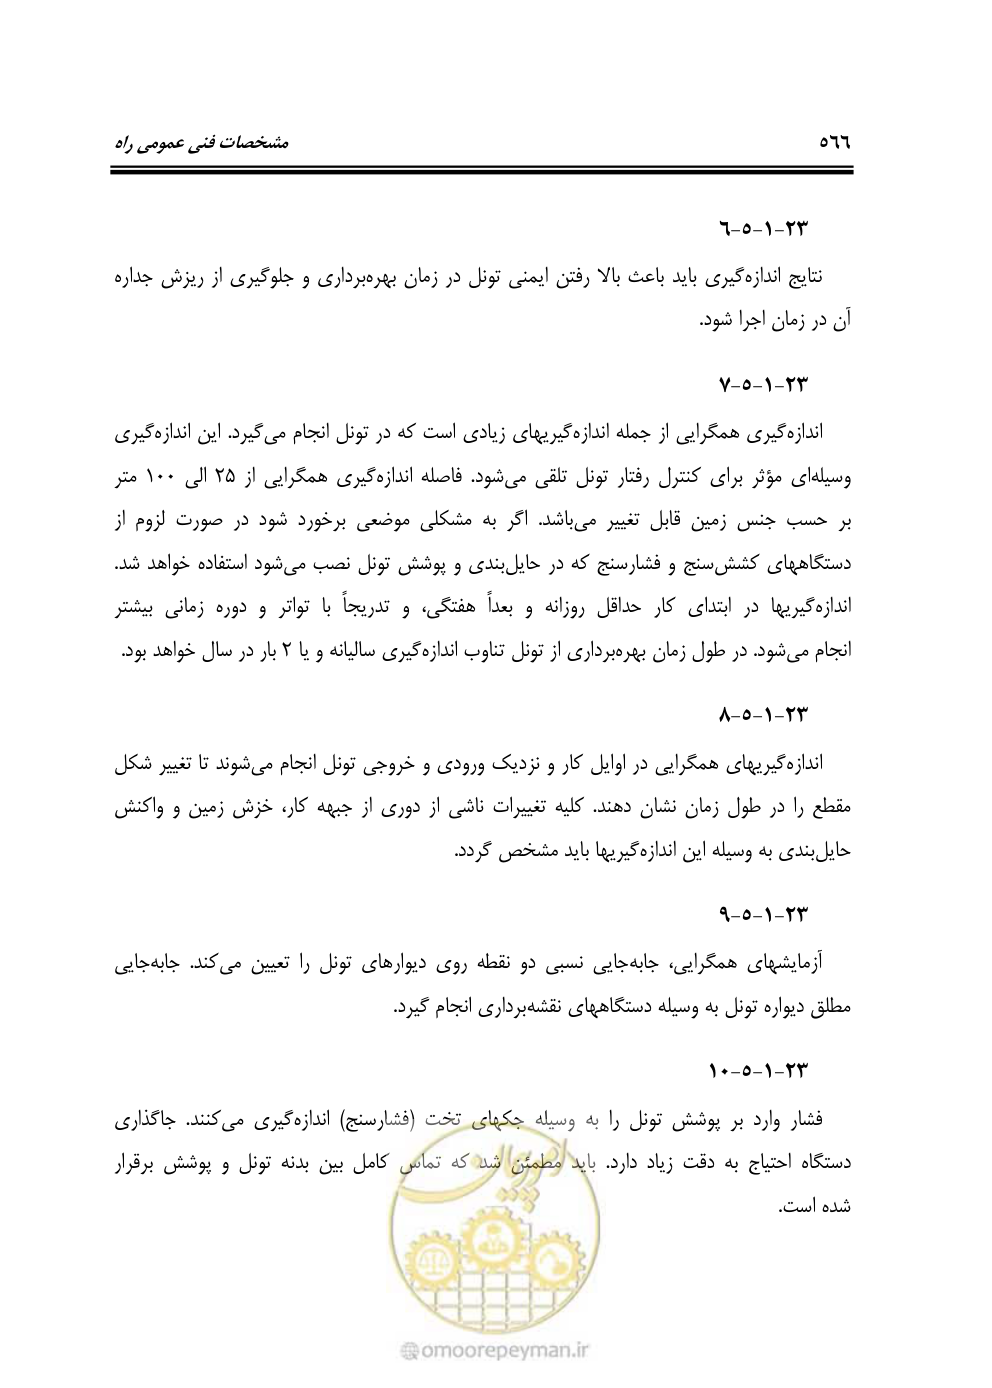 ۵۶۶
مشخصات فنی عمومی راه
۲۳-۱-۵-۶
نتایج اندازه‌گیری باید باعث بالا رفتن ایمنی تونل در زمان بهره‌برداری و جلوگیری از ریزش جداره
آن در زمان اجرا شود.
۲۳-۱-۵-۷
اندازه‌گیری همگرایی از جمله اندازه‌گیریهای زیادی است که در تونل انجام می‌گیرد. این اندازه‌گیری
وسیله‌ای مؤثر برای کنترل رفتار تونل تلقی می‌شود. فاصله اندازه‌گیری همگرایی از ۲۵ الی ۱۰۰ متر
بر حسب جنس زمین قابل تغییر می‌باشد. اگر به مشکلی موضعی برخورد شود در صورت لزوم از
دستگاههای کشش‌سنج و فشارسنج که در حایل‌بندی و پوشش تونل نصب می‌شود استفاده خواهد شد.
اندازه‌گیریها در ابتدای کار حداقل روزانه و بعداً هفتگی، و تدریجاً با تواتر و دوره زمانی بیشتر
انجام می‌شود. در طول زمان بهره‌برداری از تونل تناوب اندازه‌گیری سالیانه و یا ۲ بار در سال خواهد بود.
۲۳-۱-۵-۸
اندازه‌گیریهای همگرایی در اوایل کار و نزدیک ورودی و خروجی تونل انجام می‌شوند تا تغییر شکل
مقطع را در طول زمان نشان دهند. کلیه تغییرات ناشی از دوری از جبهه کار، خزش زمین و واکنش
حایل‌بندی به وسیله این اندازه‌گیریها باید مشخص گردد.
۲۳-۱-۵-۹
آزمایشهای همگرایی، جابه‌جایی نسبی دو نقطه روی دیوارهای تونل را تعیین می‌کند. جابه‌جایی
مطلق دیواره تونل به وسیله دستگاههای نقشه‌برداری انجام گیرد.
۲۳-۱-۵-۱۰
فشار وارد بر پوشش تونل را به وسیله جکهای تخت (فشارسنج) اندازه‌گیری می‌کنند. جاگذاری
دستگاه احتیاج به دقت زیاد دارد. باید مطمئن شد که تماس کامل بین بدنه تونل و پوشش برقرار
شده است.
امور پیمان
omoorepeyman.ir